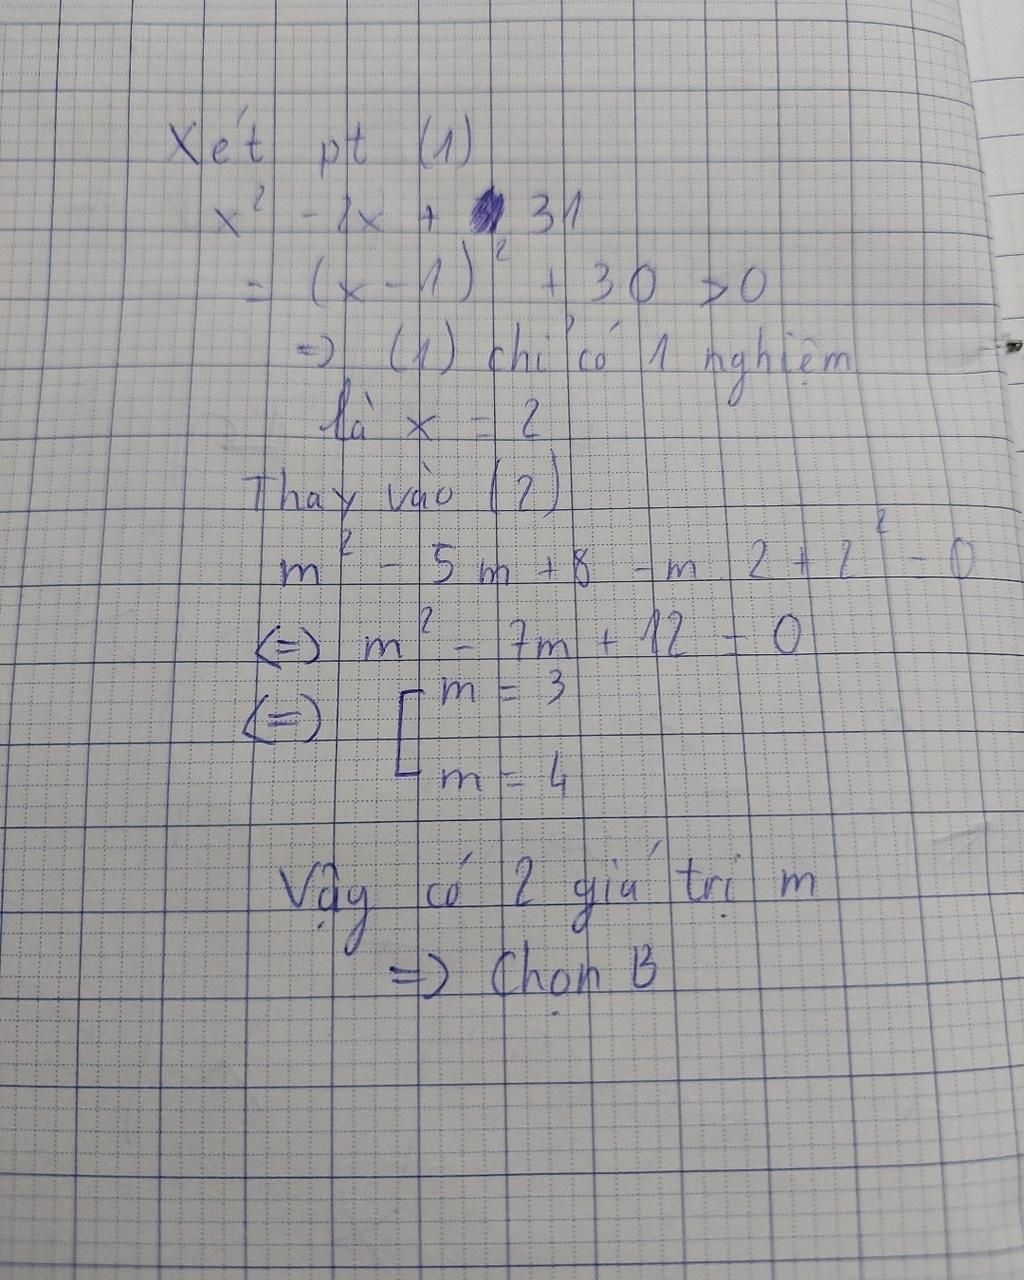 Xét pt (1)
x² - 2x + 31
= (x - 1)² + 30 > 0
=> (1) chỉ có 1 nghiệm
là x = 2
Thay vào (2)
m² - 5m + 8 - m 2 + 2² = 0
<=> m² - 7m + 12 = 0
<=> [ m = 3
m = 4
Vậy có 2 giá trị m
=> Chọn B